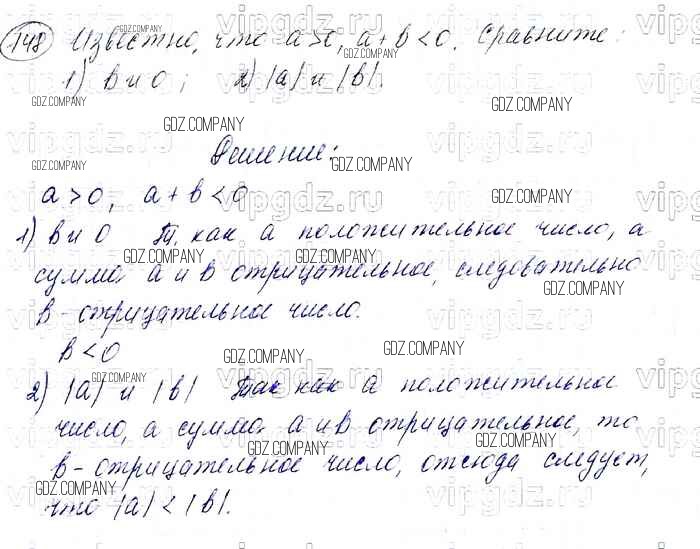 148 Известно, что a>0, a+b<0. Сравните:
1) b и 0; 2) |a| и |b|.
Решение:
a>0, a+b<0
1) b и 0 Т. как a положительное число, а
сумма a и b отрицательное, следовательно
b - отрицательное число.
b<0
2) |a| и |b| Так как a положительное
число, а сумма a и b отрицательное, то
b - отрицательное число, отсюда следует,
что |a|<|b|.